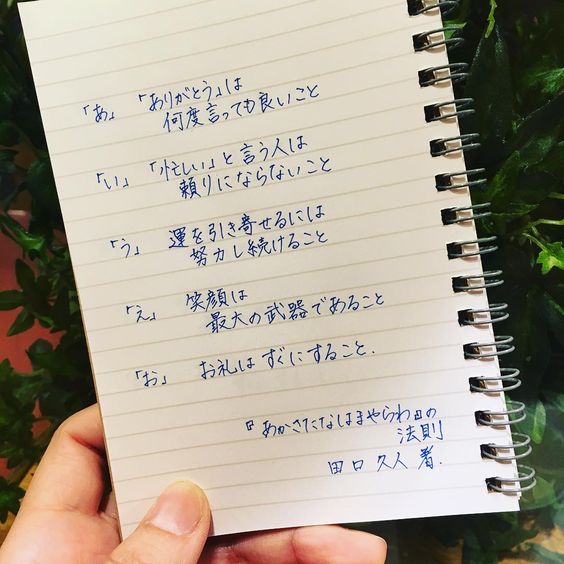 「あ」 「ありがとう」は
何度言っても良いこと
「い」 「忙しい」と言う人は
頼りにならないこと
「う」 運を引き寄せるには
努力し続けること
「え」 笑顔は
最大の武器であること
「お」 お礼はすぐにすること.
『あかさたなはまやらわ』の
法則
田口久人 著.